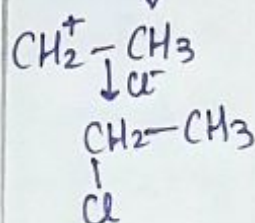 CH₂⁺ – CH₃
↓ Cl⁻
CH₂ – CH₃
|
Cl